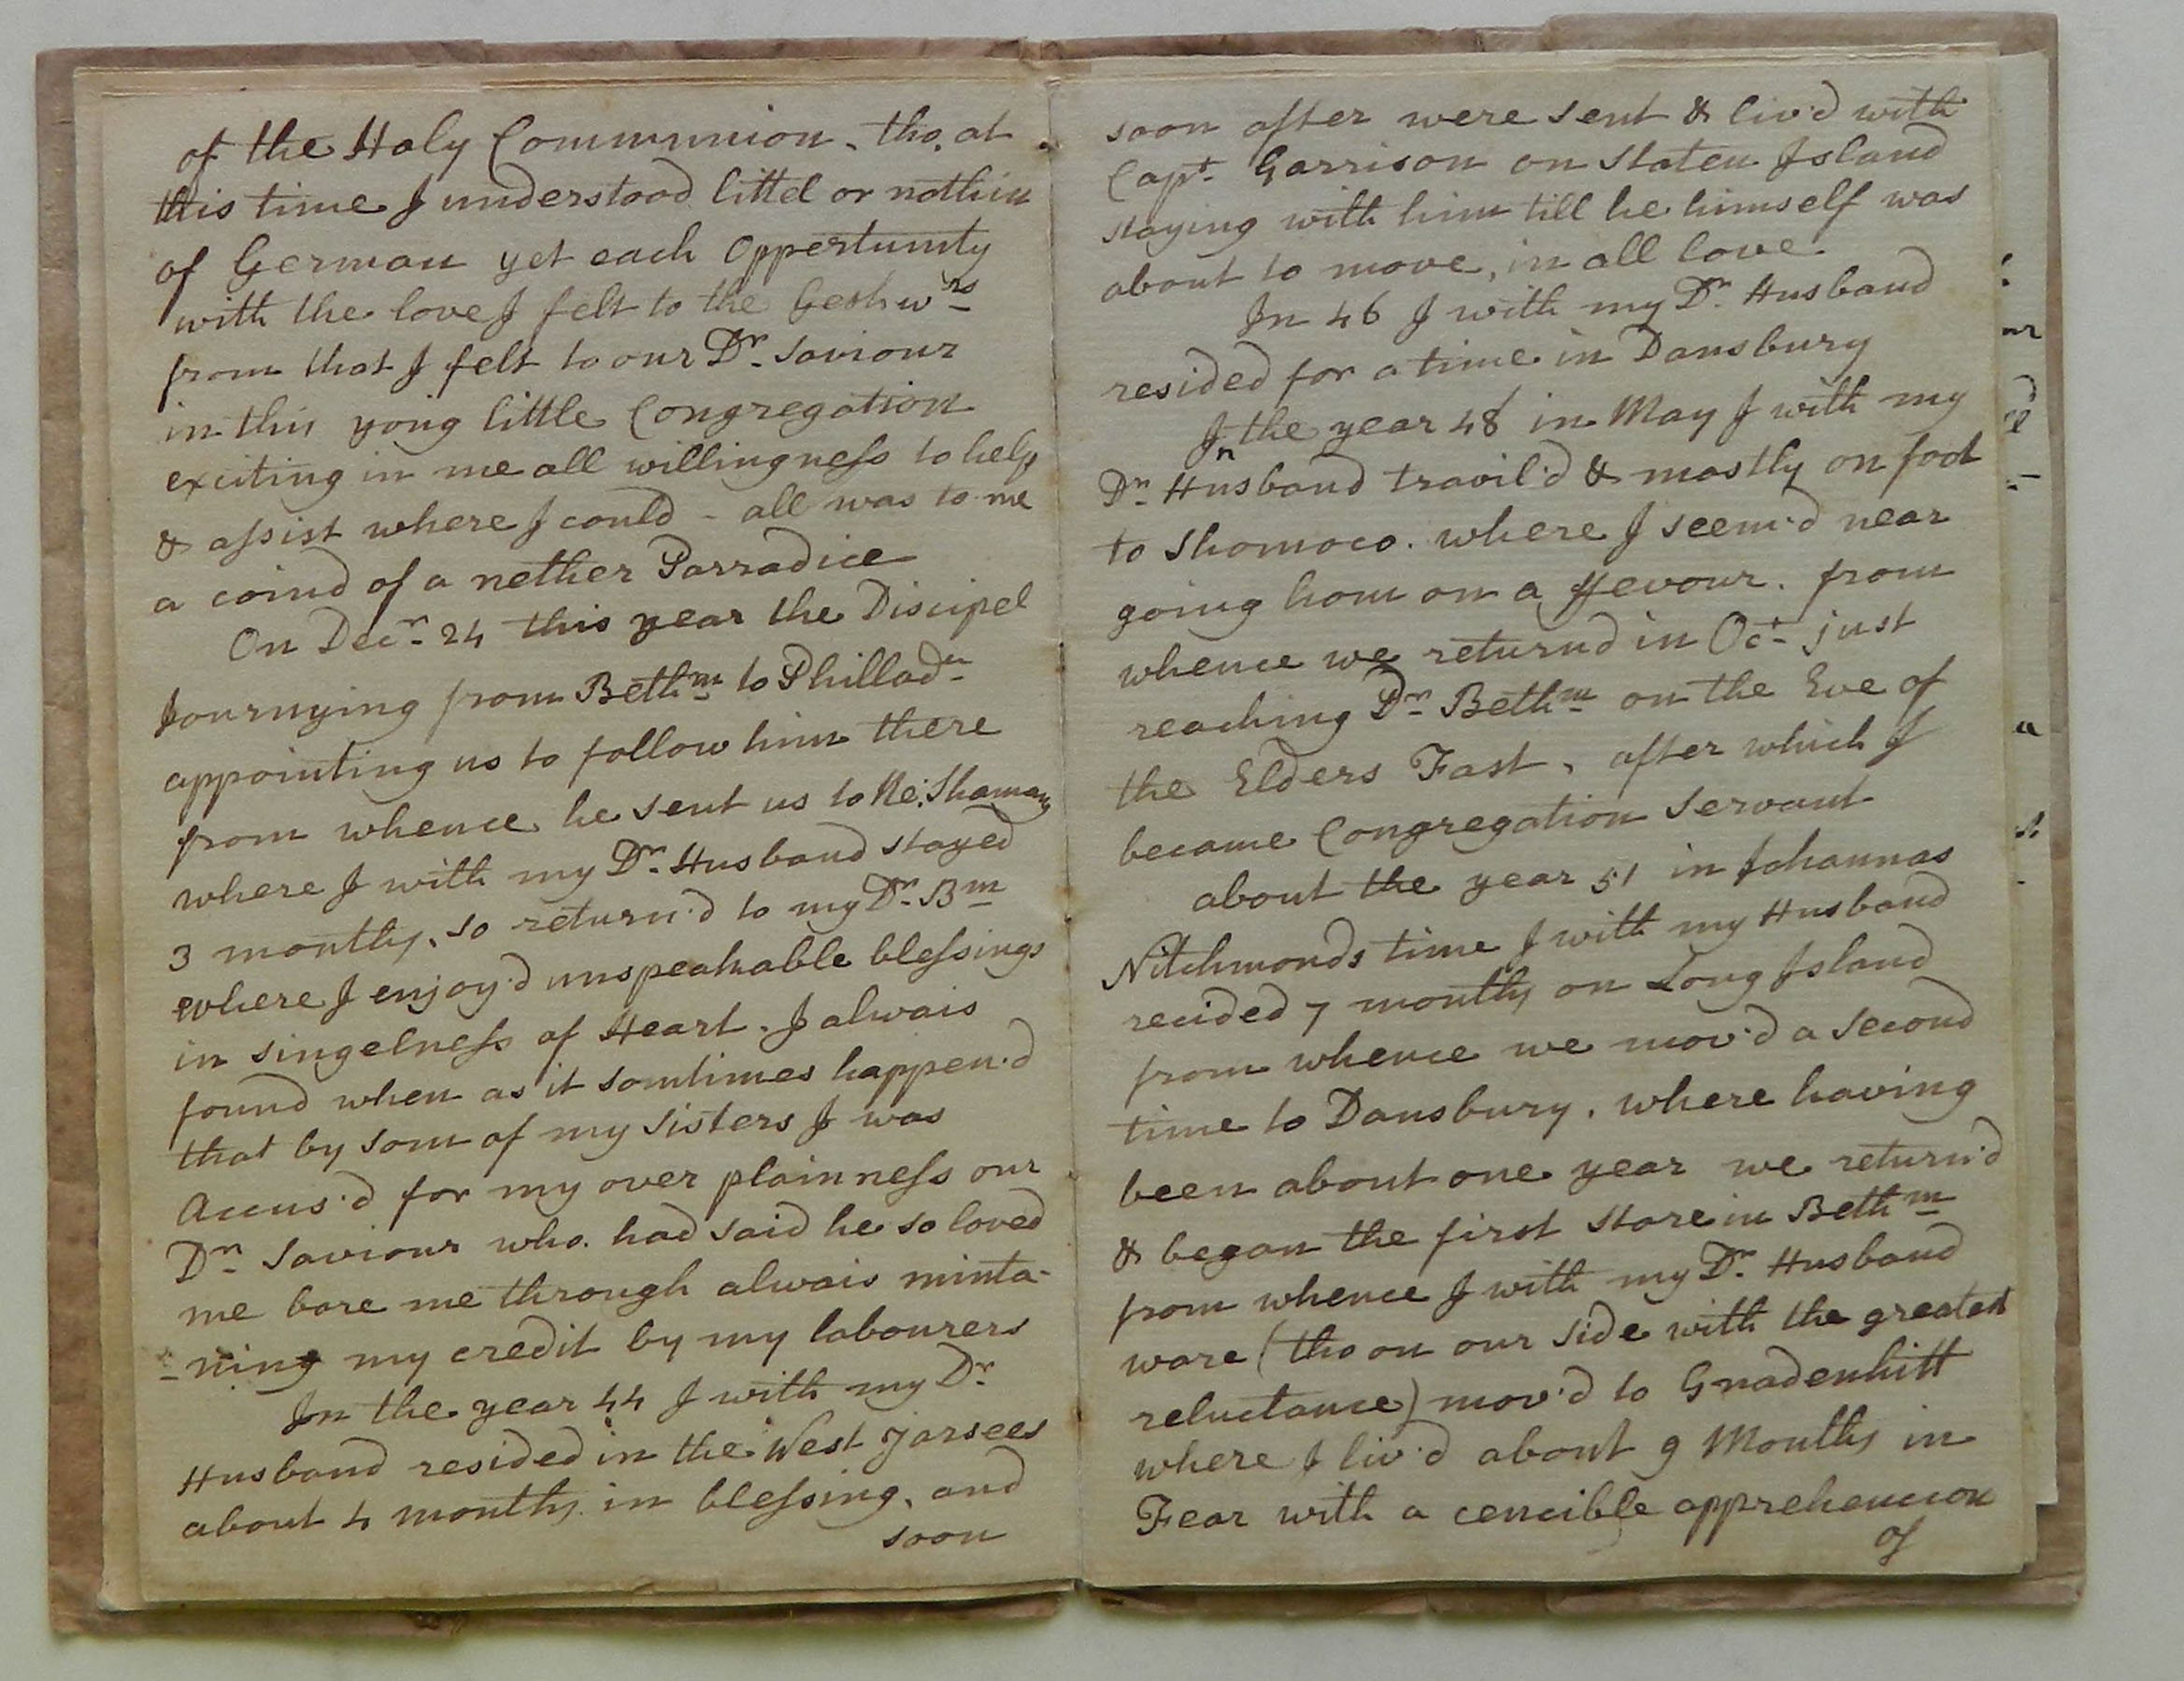 of the Holy Communion, tho, at
this time I understood littel or nothin
of German yet each Oppertunity
with the love I felt to the Geshwrs
from that I felt to our Dr. Saviour
in this yong little Congregation
exciting in me all willingness to help
& assist where I could - all was to me
a coind of a nether Parradice
On Decr. 24 this year the Discipel
Journying from Bethm to Phillad
appointing us to follow him there
from whence he sent us to Ne:Shamany
where I with my Dr. Husband stayed
3 months, so return'd to my Dr. Bm
where I enjoy'd unspeakable blessings
in singelness of Heart. I alwais
found when as it somtimes happen'd
that by som of my Sisters I was
Accus'd for my over plainness our
Dr. Saviour who. had said he so loved
me bore me through alwais minta-
-ning my credit by my labourers
In the year 44 I with my Dr.
Husband resided in the West Jarsees
about 4 months in blessing, and
soon
soon after were sent & liv'd with
Capt. Garrison on Staten Island
staying with him till he himself was
about to move, in all love.
In 46 I with my Dr. Husband
resided for a time in Dansbury
In the year 48 in May I with my
Dr. Husband travil'd & mostly on foot
to Shomoco. where I seem'd near
going hom on a ffevour. from
whence we returnd in Oct. just
reaching Dr. Bethm on the Eve of
the Elders Fast, after which I
became Congregation Servant
about the year 51 in Johannas
Nitchmonds time I with my Husband
recided 7 months on Long Island
from whence we mov'd a Second
time to Dansbury, where having
been about one year we return'd
& began the first Store in Bethm
from whence I with my Dr. Husband
ware (tho on our side with the greatest
reluctance) mov'd to Gnadenhitt
where I liv'd about 9 Months in
Fear with a cencible apprehencion
of